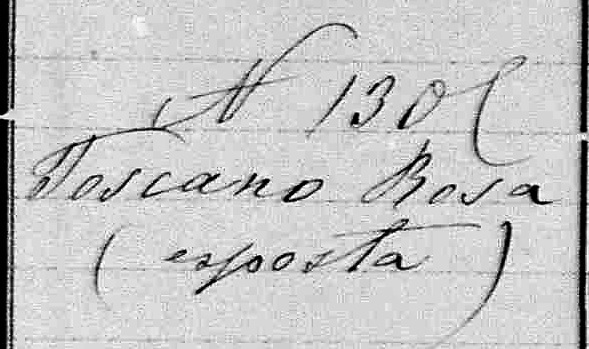 N 130
Toscano Rosa
(esposta)